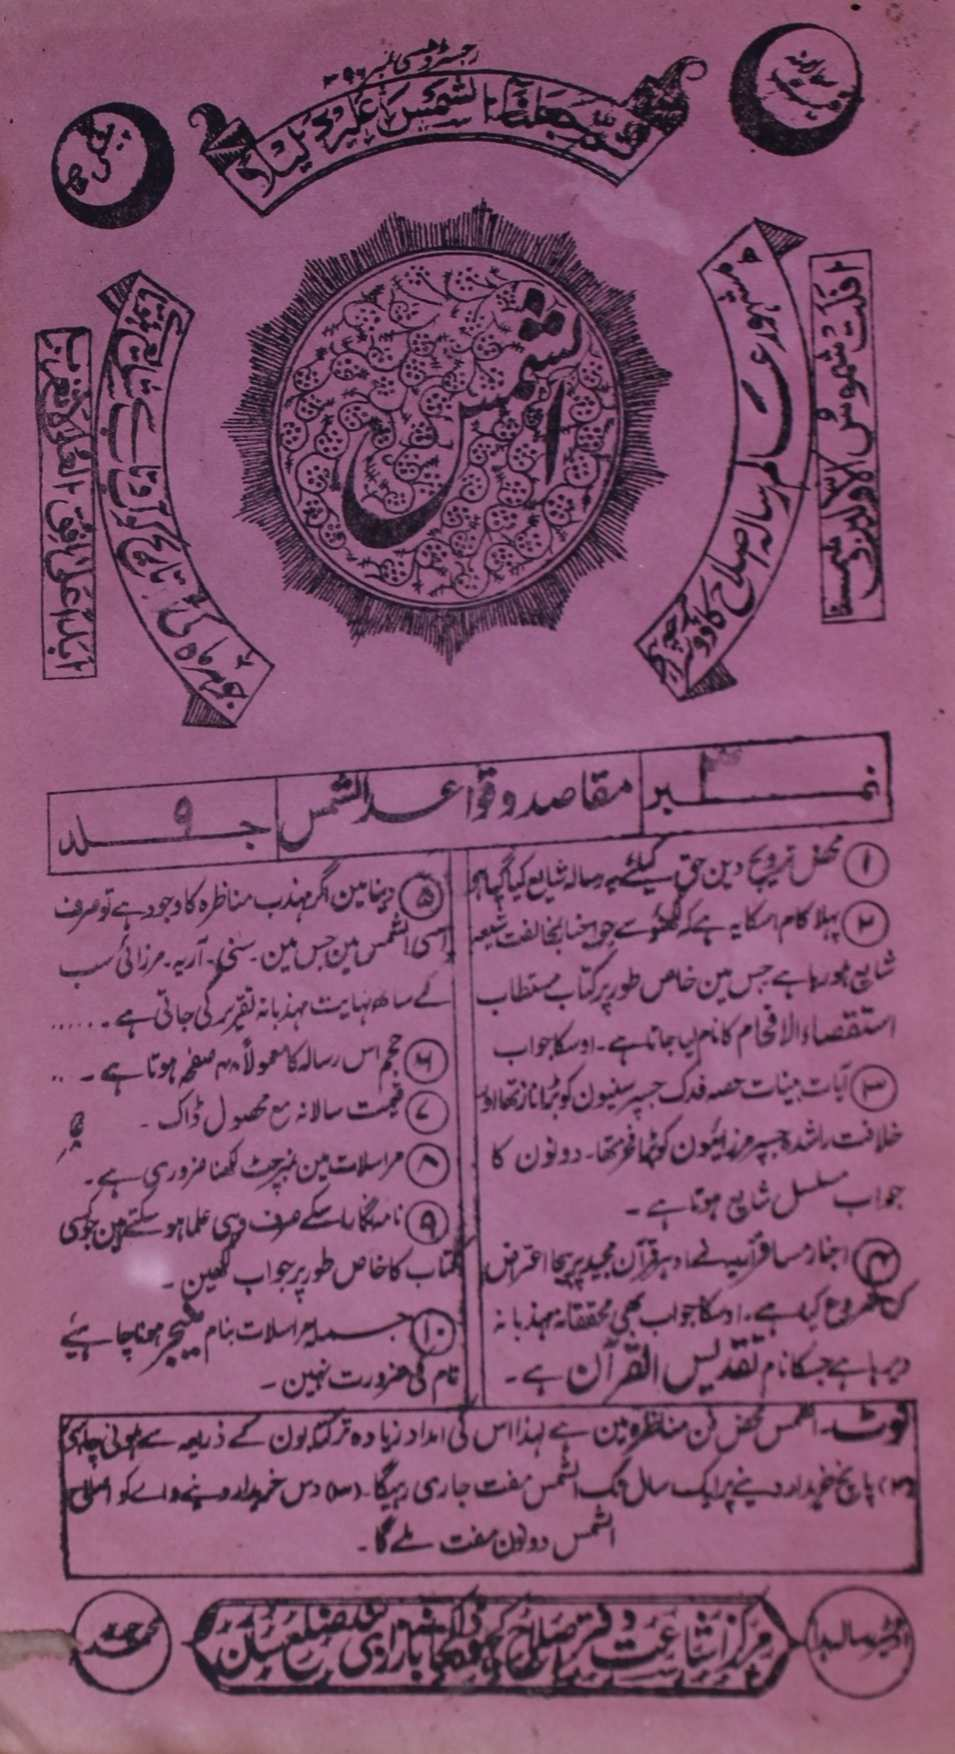 رجسٹرڈ نمبر ۳۹۶
ثم جعلنا الشمس علیہ دلیلا
الشمس
افلت شموس الاولین و شمسنا
ابدا علی افق العلا لا تغرب
مشہور عالم رسالہ اصلاح کا دوسرا
جو ہر ماہ کی تاریخ کو
نمبر ۴
مقاصد و قواعد الشمس
جلد ۹
۱ محض ترویج دین حق کیلئے یہ رسالہ شایع کیا گیا ہے
۲ پہلا کام اسکا یہ ہے کہ لکھنؤ سے جو اخبار بمخالفت شیعہ
شایع ہو رہا ہے جس مین خاص طور پر کتاب مستطاب
استقصاء الافحام کا نام لیا جاتا ہے۔ اوسکا جواب
۳ آیات بینات حصہ فدک جسپر سنیون کو بڑا ناز تھا اور
خلافت راشدہ جسپر مرزائیون کو بڑا فخر تھا۔ دونون کا
جواب مسلسل شایع ہوتا ہے۔
۴ اخبار مسافر آگرہ نے ادہر قرآن مجید پر بیجا اعتراض
کرنا شروع کیا ہے۔ اوسکا جواب بھی محققانہ مہذبانہ
دیا جا رہا ہے جسکا نام تقدیس القرآن ہے۔
۵ دنیا مین اگر مہذب مناظرہ کا وجود ہے تو صرف
اسی الشمس مین جس مین۔ سنی۔ آریہ۔ مرزائی سب
کے ساتھ نہایت مہذبانہ تقریر کی جاتی ہے۔.....
۶ حجم اس رسالہ کا معمولاً ۴۸ صفحہ ہوتا ہے۔ ..
۷ قیمت سالانہ مع محصول ڈاک۔
۸ مراسلات مین نمبر چٹ لکھنا ضروری ہے۔
۹ نامہ نگار اسکے صرف وہی علما ہو سکتے ہین جو کسی
کتاب کا خاص طور پر جواب لکھین۔
۱۰ جملہ مراسلات بنام منیجر ہونا چاہیے
نام کی ضرورت نہین۔
نوٹ۔ الشمس محض فن مناظرہ مین ہے لہذا اس کی امداد زیادہ تر کتابون کے ذریعہ سے ہونی چاہئے
(۲) پانچ خریدار دینے پر ایک سال تک الشمس مفت جاری رہیگا۔ (۳) دس خریدار دینے والے کو اصلاح
الشمس دونون مفت ملے گا۔
اڈیٹر رسالہ ہذا
مرکز اشاعت دفتر اصلاح کھجوا ڈاکخانہ ضلع سارن